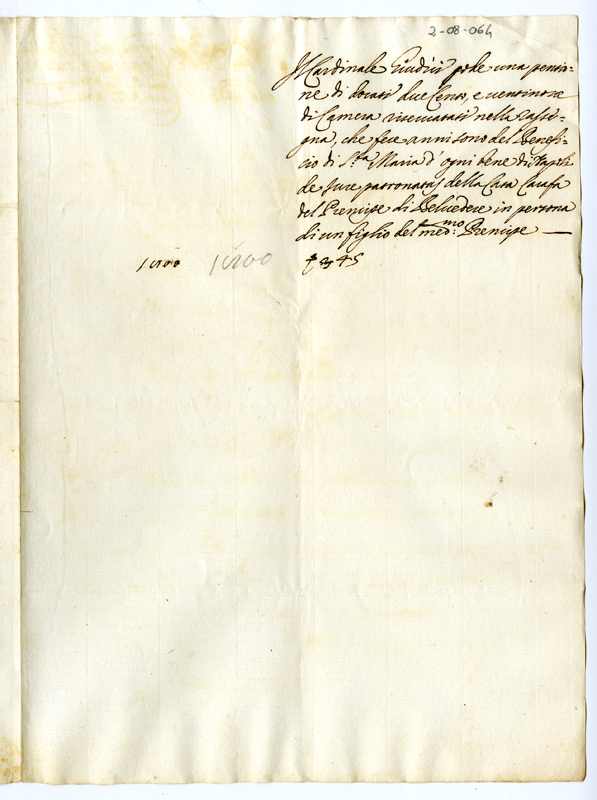 2-08-064
Il Cardinale Giudici gode una pensio-
ne di docati due Cento, e ventinove
di Camera riservatasi nella rasse-
gna, che fece anni sono del Benefi-
cio di S.ta Maria d'ogni bene di Napoli
de jure patronatus della Casa Carafa
del Prencipe di Belvedere in persona
di un figlio del med:mo Prencipe —
1700 1700